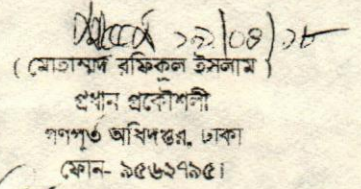 ১২/০৪/১৮
( মোহাম্মদ রফিকুল ইসলাম )
প্রধান প্রকৌশলী
গণপূর্ত অধিদপ্তর, ঢাকা
ফোন- ৯৫৬২৭৯৫।